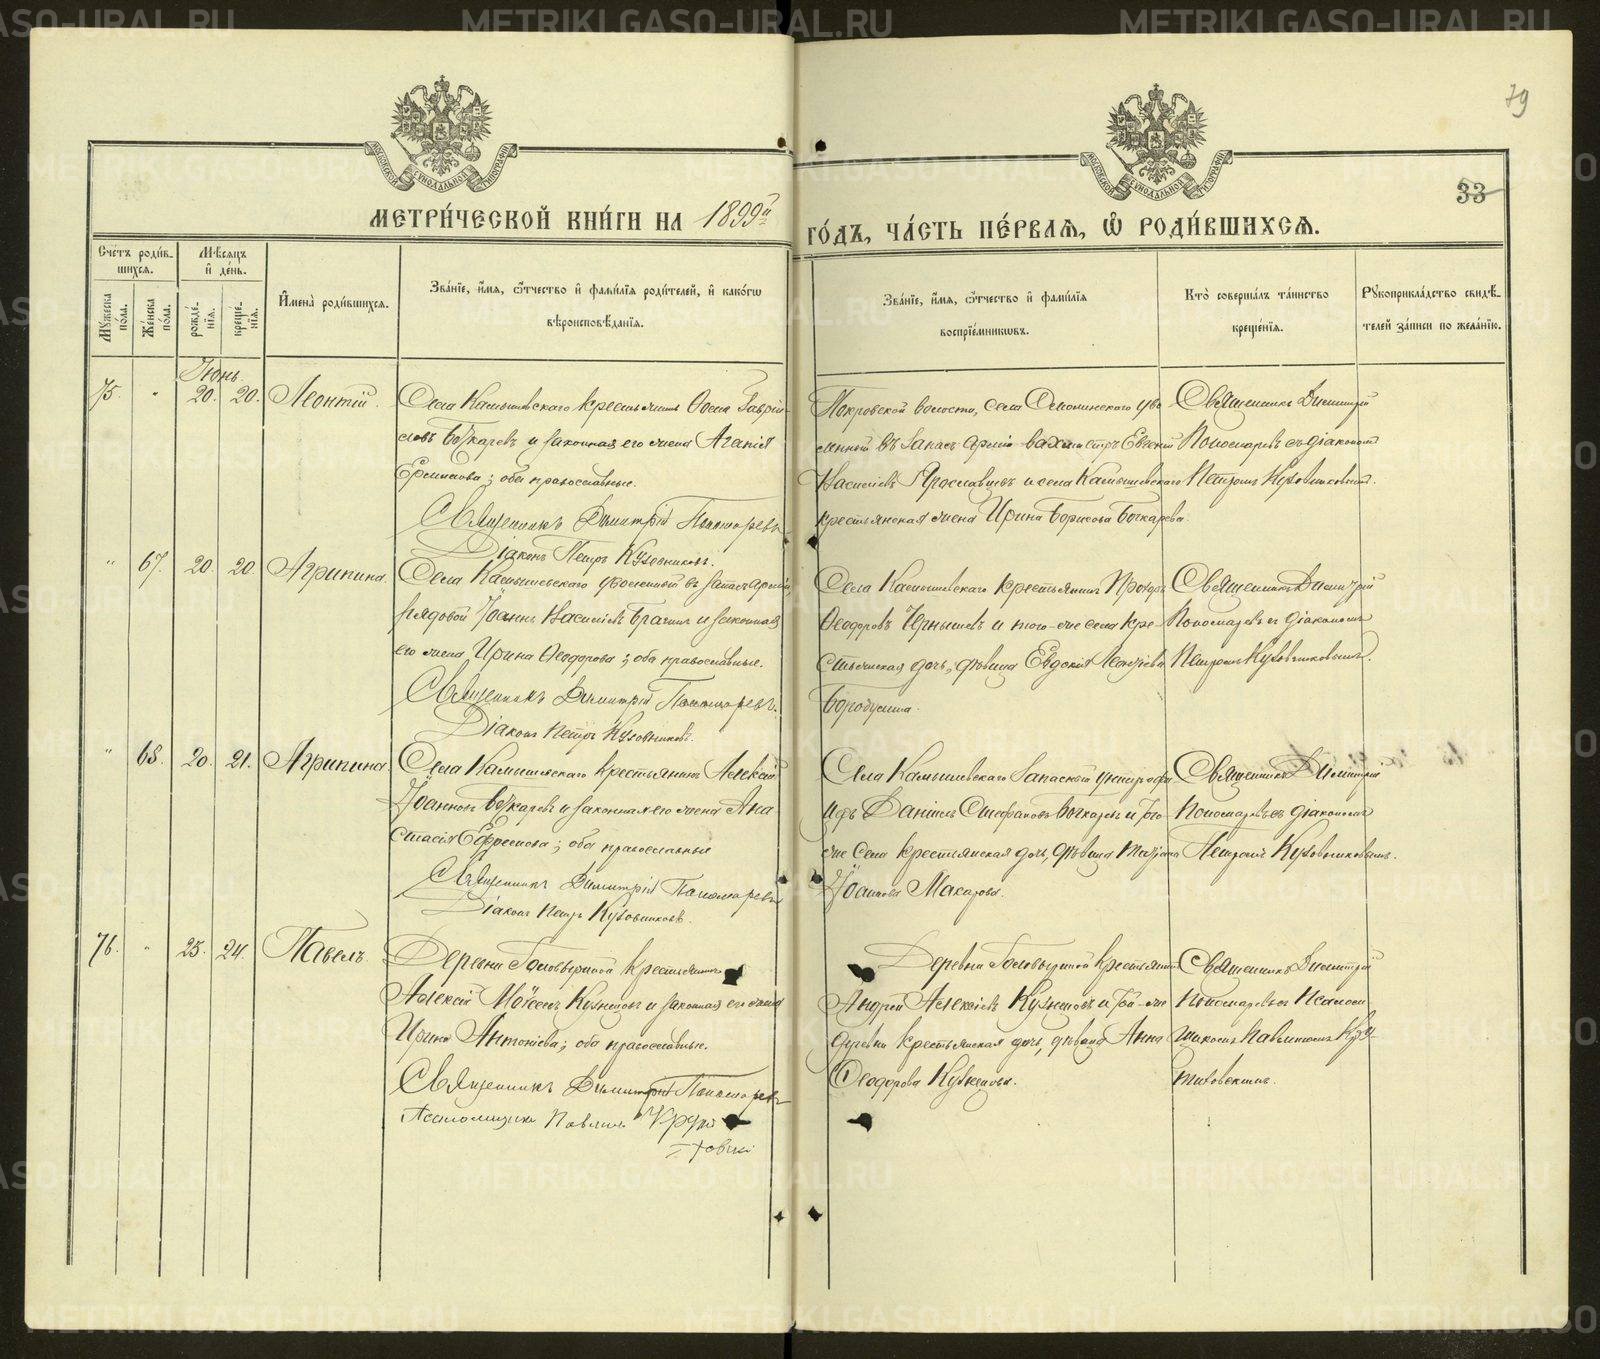 79
33
МЕТРИ́ЧЕСКОЙ КНИ́ГИ НА 1899й ГО́ДЪ, ЧА́СТЬ ПЕ́РВАЯ, Ѽ РОДИ́ВШИХСЯ.
Сче́тъ роди́в-
шихся.
Мѣ́сяцъ
и҆ де́нь.
Му́жеска по́ла.
Же́нска по́ла.
рожде́-
нїя.
креще́-
нїя.
И҆мена̀ роди́вшихся.
Зва́нїе, и҆́мя, ѻ҆́тчество и҆ фами́лїя роди́телей, и҆ како́гѡ
вѣроисповѣ́данїя.
Зва́нїе, и҆́мя, ѻ҆́тчество и҆ фами́лїя
воспрїе́мниковъ.
Кто̀ соверша́лъ та́инство
креще́нїя.
Рꙋкоприкла́дство свидѣ́-
телей за́писи по жела́нїю.
Іюнь
75. " 20. 20. Леонтій.
Села Камышевскаго крестьянинъ Гаврій-
ловъ Бочкаревъ и законная его жена Агапія
; оба православные.
Священникъ Димитрій Пономаревъ
Діаконъ Петръ Кузовниковъ.
Покровской волости, села
въ запасъ арміи Евгеній
Василіевъ Ярославцевъ и села Камышевскаго
крестьянская жена Ирина Борисова Бочкарева.
Священникъ Димитрій
Пономаревъ съ діакономъ
Петромъ Кузовниковымъ.
" 67. 20. 20. Агрипина.
Села Камышевскаго уволенный въ запасъ арміи
рядовой Іоаннъ Василіевъ и законная
его жена Ирина Ѳеодорова; оба православные.
Священникъ Димитрій Пономаревъ.
Діаконъ Петръ Кузовниковъ.
Села Камышевскаго крестьянинъ
Ѳеодоровъ Чернышевъ и того-же села кре-
стьянская дочь, дѣвица Евдокія
Священникъ Димитрій
Пономаревъ съ діакономъ
Петромъ Кузовниковымъ.
" 68. 20. 21. Агрипина.
Села Камышевскаго крестьянинъ Алексій
Іоанновъ Бочкаревъ и законная его жена Ана-
стасія Ефремова; оба православные
Священникъ Димитрій Пономаревъ
Діаконъ Петръ Кузовниковъ.
Села Камышевскаго запасный унтеръ-офи-
церъ Даніилъ Стефановъ Бочкаревъ и того-
же села крестьянская дочь, дѣвица
Іоаннова Макарова.
Священникъ Димитрій
Пономаревъ съ діакономъ
Петромъ Кузовниковымъ.
76. " 23. 24. Павелъ.
Деревни крестьянинъ
Алексій Моѵсеевъ Кузнецовъ и законная его жена
Ирина Антоніева; оба православные.
Священникъ Димитрій Пономаревъ
Псаломщикъ Павлинъ
Деревни крестьянинъ
Андрей Алексіевъ Кузнецовъ и той-же
деревни крестьянская дочь, дѣвица Анна
Ѳеодорова Кузнецова.
Священникъ Димитрій
Пономаревъ съ псалом-
щикомъ Павлиномъ
METRIKI.GASO-URAL.RU